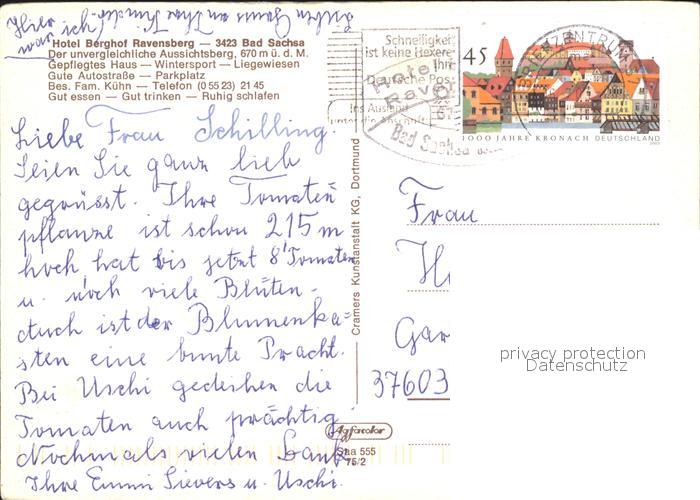 Lieben Gruss an Ihre Kinder.
Hier
war ich!
Hotel Berghof Ravensberg — 3423 Bad Sachsa
Der unvergleichliche Aussichtsberg, 670 m ü. d. M.
Gepflegtes Haus — Wintersport — Liegewiesen
Gute Autostraße — Parkplatz
Bes. Fam. Kühn — Telefon (0 55 23) 21 45
Gut essen — Gut trinken — Ruhig schlafen
Liebe Frau Schilling.
Seien Sie ganz lieb
gegrüsst. Ihre Tomaten
pflanze ist schon 215 m
hoch hat bis jetzt 8 Tomaten
u. noch viele Blüten.
Auch ist der Blumenka=
sten eine bunte Pracht.
Bei Uschi gedeihen die
Tomaten auch prächtig.
Nochmals vielen Dank.
Ihre Emmi Sievers u. Uschi.
Cramers Kunstanstalt KG, Dortmund
Schnelligkei
ist keine Hexere
Ihre
Deutsche Pos
Ins Ausland
Hotel
Rav
Bad Sachsa
45
1000 JAHRE KRONACH DEUTSCHLAND
Frau
Gar
37603
privacy protection
Datenschutz
Agfacolor
Saa 555
75/2